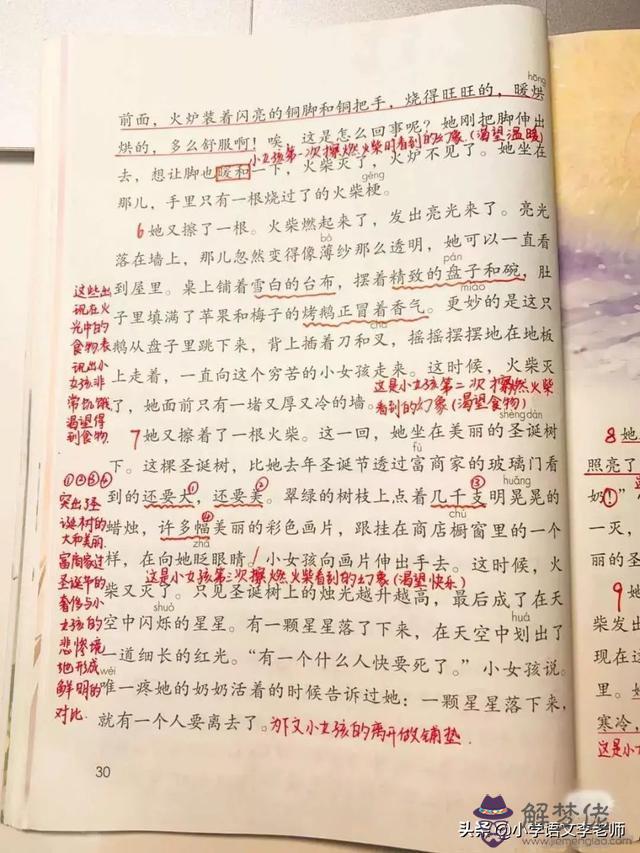 hōng
前面，火炉装着闪亮的铜脚和铜把手，烧得旺旺的，暖烘
烘的，多么舒服啊！唉，这是怎么回事呢？她刚把脚伸出
小女孩第一次擦燃火柴时看到的幻象（渴望温暖）
去，想让脚也暖和一下，火柴灭了，火炉不见了。她坐在
gěng
那儿，手里只有一根烧过了的火柴梗。
6 她又擦了一根。火柴燃起来了，发出亮光来了。亮光
bó
落在墙上，那儿忽然变得像薄纱那么透明，她可以一直看
pán
到屋里。桌上铺着雪白的台布，摆着精致的盘子和碗，肚
miào
子里填满了苹果和梅子的烤鹅正冒着香气。更妙的是这只
chā
鹅从盘子里跳下来，背上插着刀和叉，摇摇摆摆地在地板
上走着，一直向这个穷苦的小女孩走来。这时候，火柴灭
这是小女孩第二次擦燃火柴
了，她面前只有一堵又厚又冷的墙。
看到的幻象（渴望食物）
这些出
现在火
光中的
食物表
现出小
女孩非
常饥饿
渴望得
到食物.
shèng dàn
7 她又擦着了一根火柴。这一回，她坐在美丽的圣诞树
fù
下。这棵圣诞树，比她去年圣诞节透过富商家的玻璃门看
① ② ③ huǎng
到的还要大，还要美。翠绿的树枝上点着几千支明晃晃的
④ chú
蜡烛，许多幅美丽的彩色画片，跟挂在商店橱窗里的一个
zhǎ
样，在向她眨眼睛。小女孩向画片伸出手去。这时候，火
这是小女孩第三次擦燃火柴看到的幻象（渴望快乐）
柴又灭了。只见圣诞树上的烛光越升越高，最后成了在天
shuò
空中闪烁的星星。有一颗星星落了下来，在天空中划出了
huá
一道细长的红光。“有一个什么人快要死了。”小女孩说。
wéi
唯一疼她的奶奶活着的时候告诉过她：一颗星星落下来，
就有一个人要离去了。
为下文小女孩的离开做铺垫.
①②③④
突出了圣
诞树的
大和美丽.
富商家过
圣诞节的
奢侈与小
女孩的
悲惨境
地形成
鲜明的
对比.
30
8 她
照亮了
奶！”
一灭，
丽的圣
9 她
柴发出
现在这
里。好
寒冷，
这是小
解梦佬
www.jiemenglao.com
头条@小学语文李老师